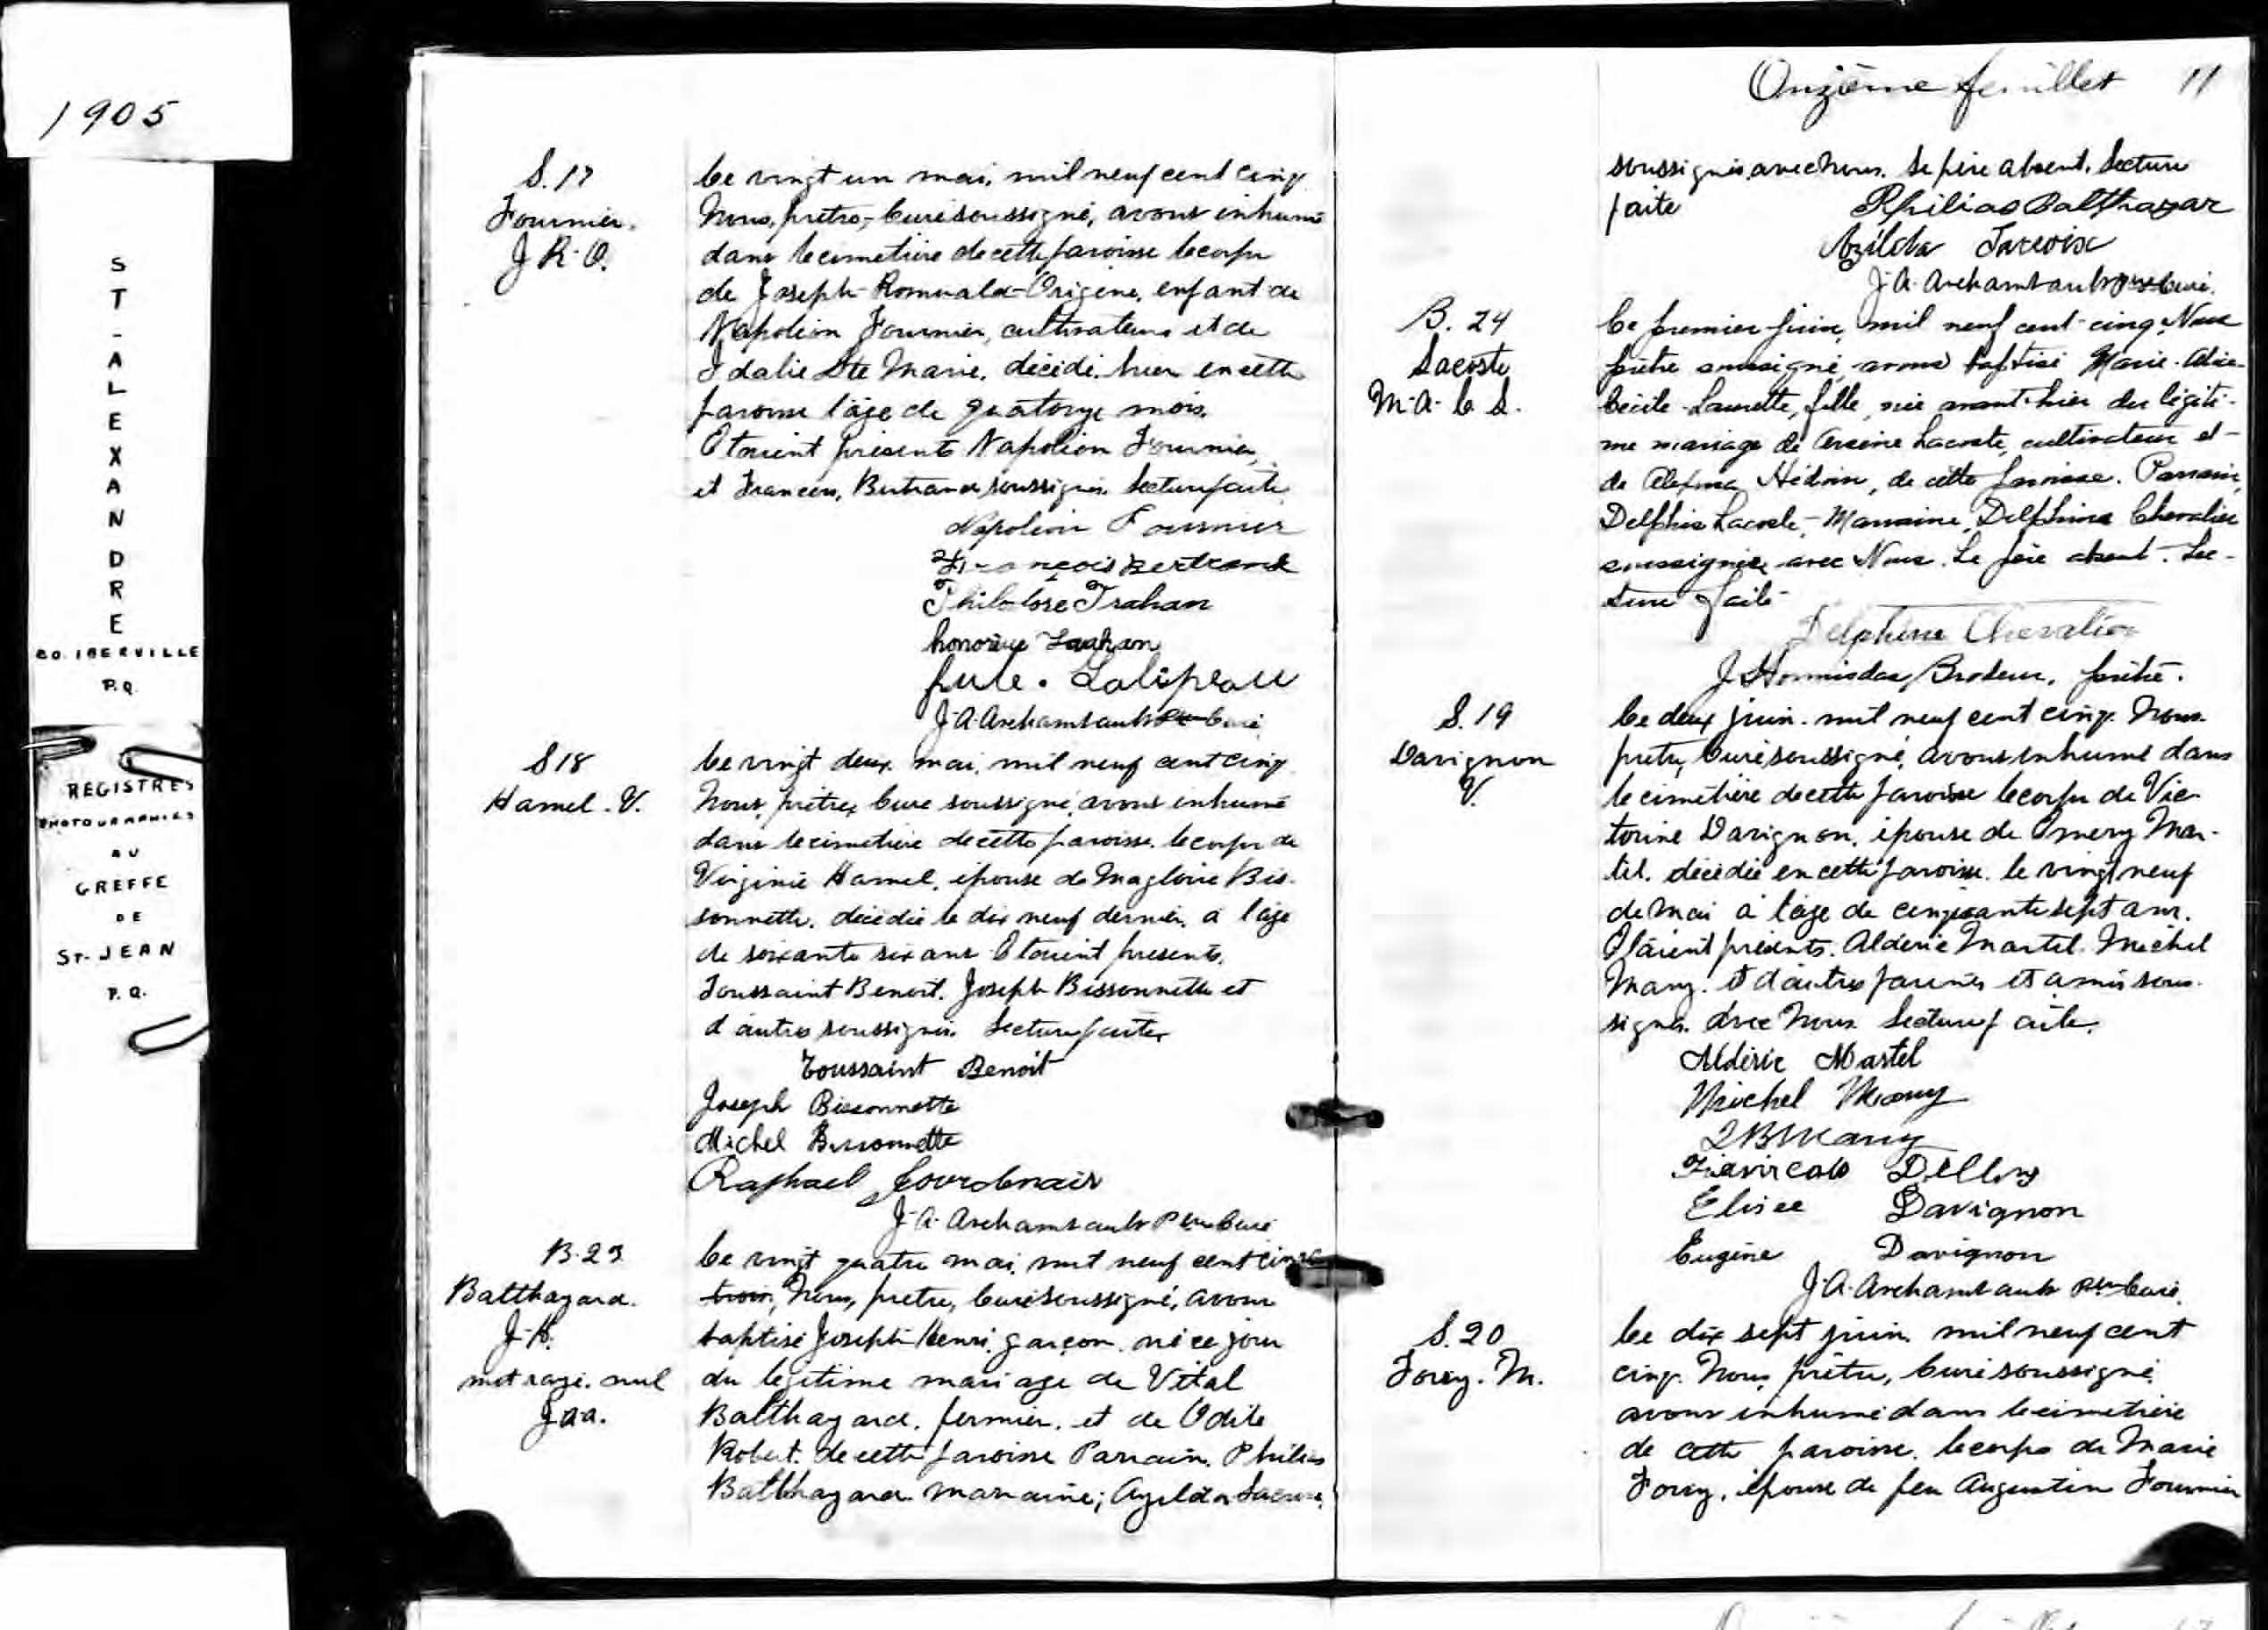 1905
ST-ALEXANDRE
CO. IBERVILLE
P.Q.
REGISTRES
PHOTOGRAPHIES
AU
GREFFE
DE
ST-JEAN
P.Q.
S. 17
Fournier.
J. R. O.
Ce vingt un mai, mil neuf cent cinq
Nous, prêtre, Curé soussigné, avons inhumé
dans le cimetière de cette paroisse le corps
de Joseph-Romuald-Origène, enfant de
Napoléon Fournier, cultivateur et de
Idalie Ste Marie, décédé hier en cette
paroisse l'âge de quatorze mois.
Etaient présents Napoléon Fournier,
et François Bertrand soussignés. Lecture faite
Napoléon Fournier
François Bertrand
Trahan
Trahan
J-A-Archambault Ptre Curé
S 18
Hamel. V.
Ce vingt deux mai, mil neuf cent cinq
Nous, prêtre, Curé soussigné, avons inhumé
dans le cimetière de cette paroisse le corps de
Virginie Hamel, épouse de Magloire Bis-
sonnette, décédée le dix neuf dernier, a l'âge
de soixante six ans. Etaient presents,
Toussaint Benoit. Joseph Bissonnette et
d'autres soussignés. Lecture faite,
Toussaint Benoit
Joseph Bissonnette
Michel Bissonnette
Raphael Jourdenais
J-A-Archambault Ptre Curé
B. 23
Balthazard.
J-H.
mot rayé. nul
J.a.a.
Ce vingt quatre mai, mil neuf cent cinq
trois, Nous, pretre, Curé soussigné, avons
baptisé Joseph-Henri, garçon né ce jour
du légitime mariage de Vital
Balthazard, fermier, et de Odile
Robert de cette paroisse Parrain, Philias
Balthazard. marraine; Azilda Lacroix,
Onzième feuillet 11
soussignés avec nous. Le père absent. Lecture
faite Philias Balthazar
Azilda Lacroix
J-A-Archambault ptre Curé.
B. 24
Lacoste
M-A- C L.
Ce premier juin, mil neuf cent-cinq, Nous
prêtre soussigné, avons baptisé Marie-Alice-
Cécile-Laurette, fille née avant-hier du légiti-
me mariage de Arsène Lacoste, cultivateur et
de Alexina Hédoin, de cette paroisse. Parrain,
Delphis Lacoste,-Marraine, Delphine Chevalier
soussignée avec Nous. Le père absent. Lec-
ture faite-
Delphine Chevalier
J Hormisdas Brodeur, prêtre.
S. 19
Davignon
V.
Ce deux juin. mil neuf cent cinq. Nous
pretre, Curé soussigné, avons inhumé dans
le cimetière de cette paroisse le corps de Vic-
torine Davignon, épouse de Emery Mar-
tel. décédée en cette paroisse. le vingt neuf
de mai a l'âge de cinquante sept ans.
Etaient présents. Aldéric Martel. Michel
Many. et d'autres parents et amis sous-
signés. avec Nous. Lecture faite.
Aldéric Martel
Michel Many
Elisée Davignon
Eugène Davignon
J-A-Archambault Ptre Curé.
S. 20
Forey. M.
Ce dix sept juin mil neuf cent
cinq. Nous, prêtre, Curé soussigné
avons inhumé dans le cimetière
de cette paroisse, le corps de Marie
Forey, épouse de feu Augustin Fournier